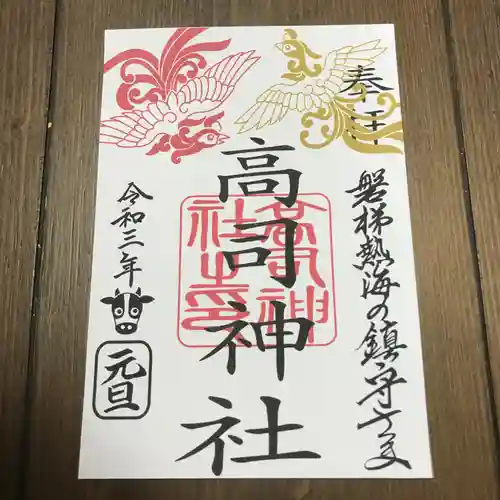 奉拝
磐梯熱海の鎮守さま
高司神社
高司神社之印
令和三年
元旦